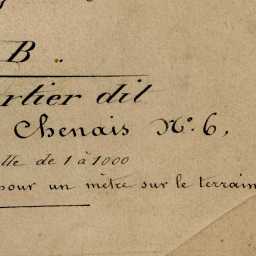 B
rtier dit
Chenais N.º 6,
lle de 1 à 1000
pour un mètre sur le terrain